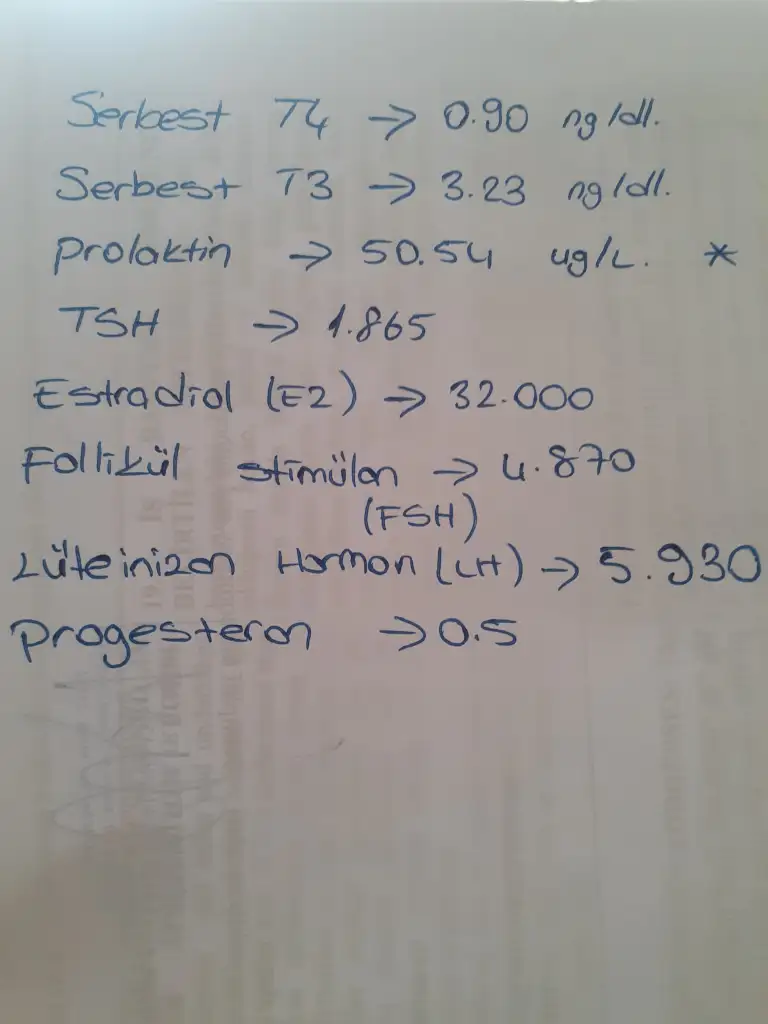 Serbest T4 → 0.90 ng/dl.
Serbest T3 → 3.23 ng/dl.
Prolaktin → 50.54 ug/L. *
TSH → 1.865
Estradiol (E2) → 32.000
Follikül stimülan → 4.870
(FSH)
Lüteinizan Hormon (LH) → 5.930
Progesteron → 0.5